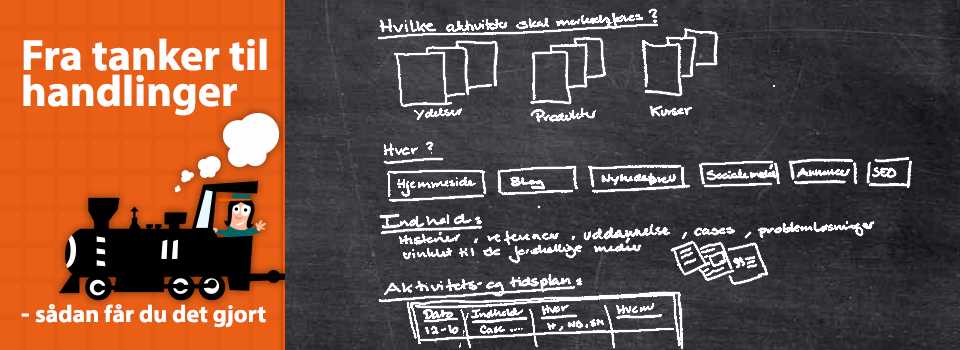 Fra tanker til
handlinger
- sådan får du det gjort
Hvilke aktiviteter skal markedsføres?
Ydelser Produkter Kurser
Hvor?
Hjemmeside Blog Nyhedsbrev Sociale medier Annoncer SEO
Indhold:
Historier, referencer, uddannelse, cases, problemløsninger
vinklet til de forskellige medier
Aktivitets- og tidsplan:
Dato Indhold Hvor Hvem
12-6 Case .... H, NB, SM